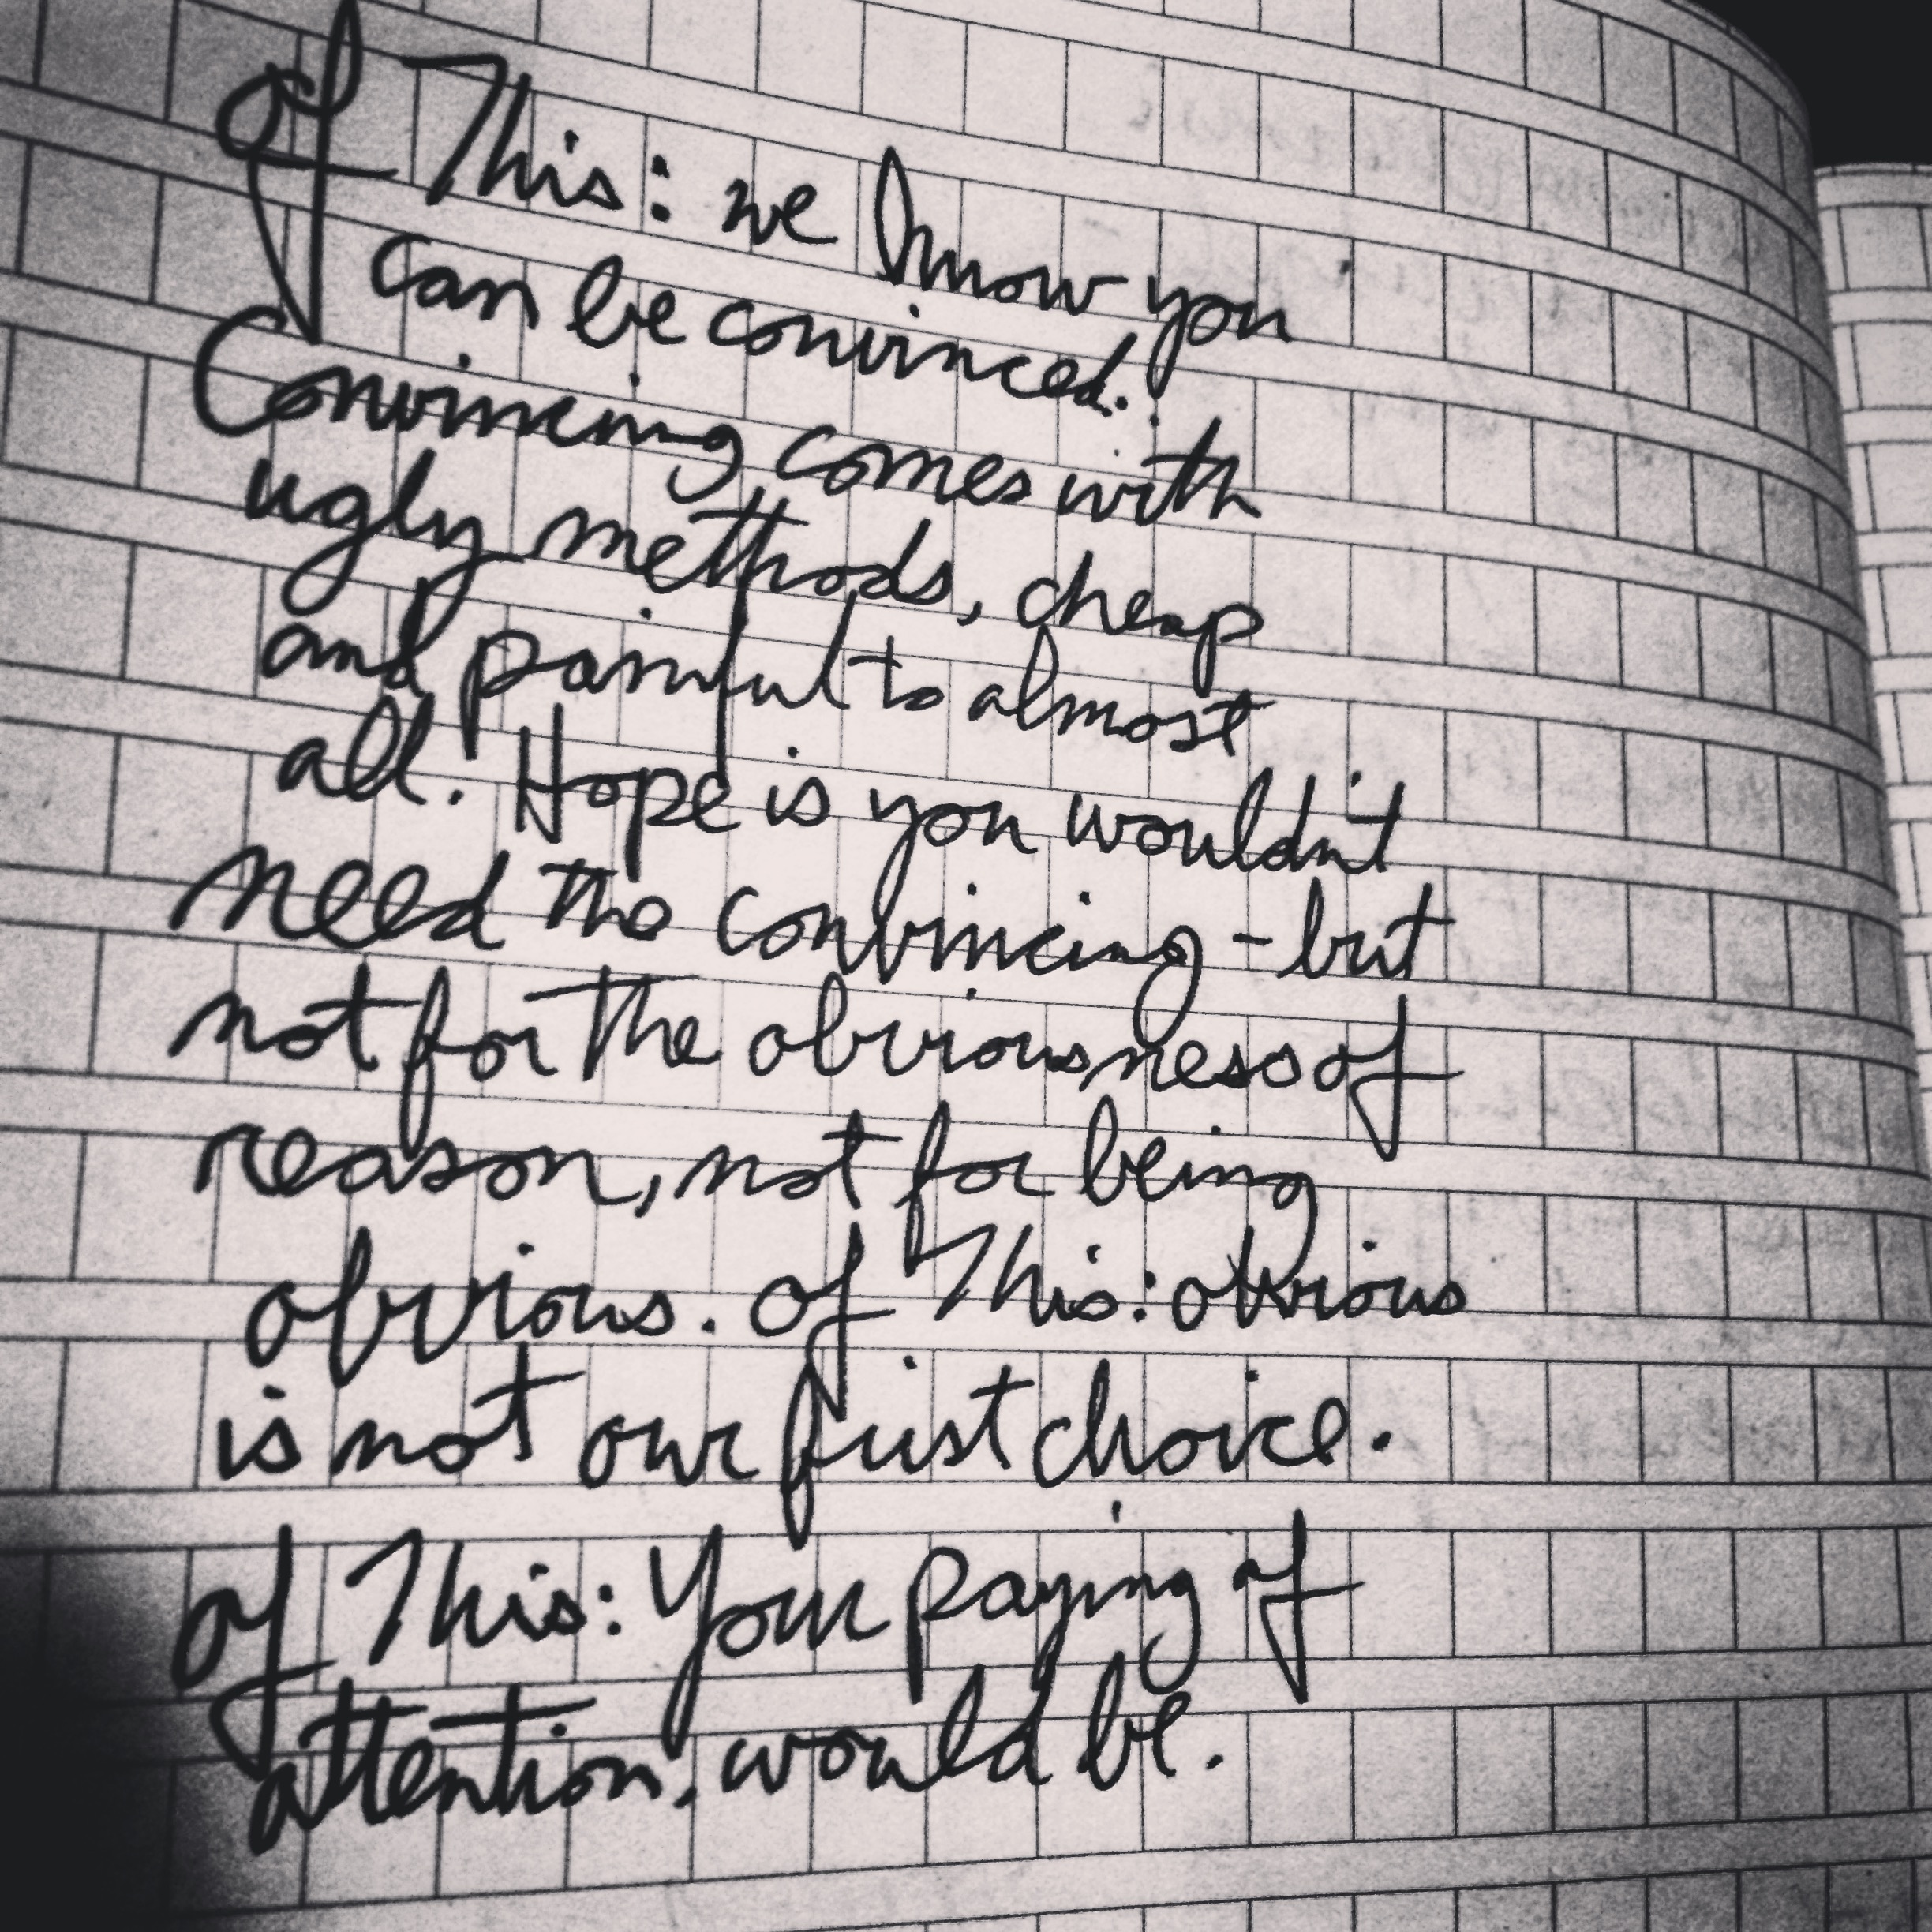 of This: we know you
can be convinced.
Convincing comes with
ugly methods, cheap
and painful to almost
all. Hope is you wouldn't
need the convincing - but
not for the obviousness of
reason, not for being
obvious. of This: obvious
is not our first choice.
of This: Your paying of
attention, would be.